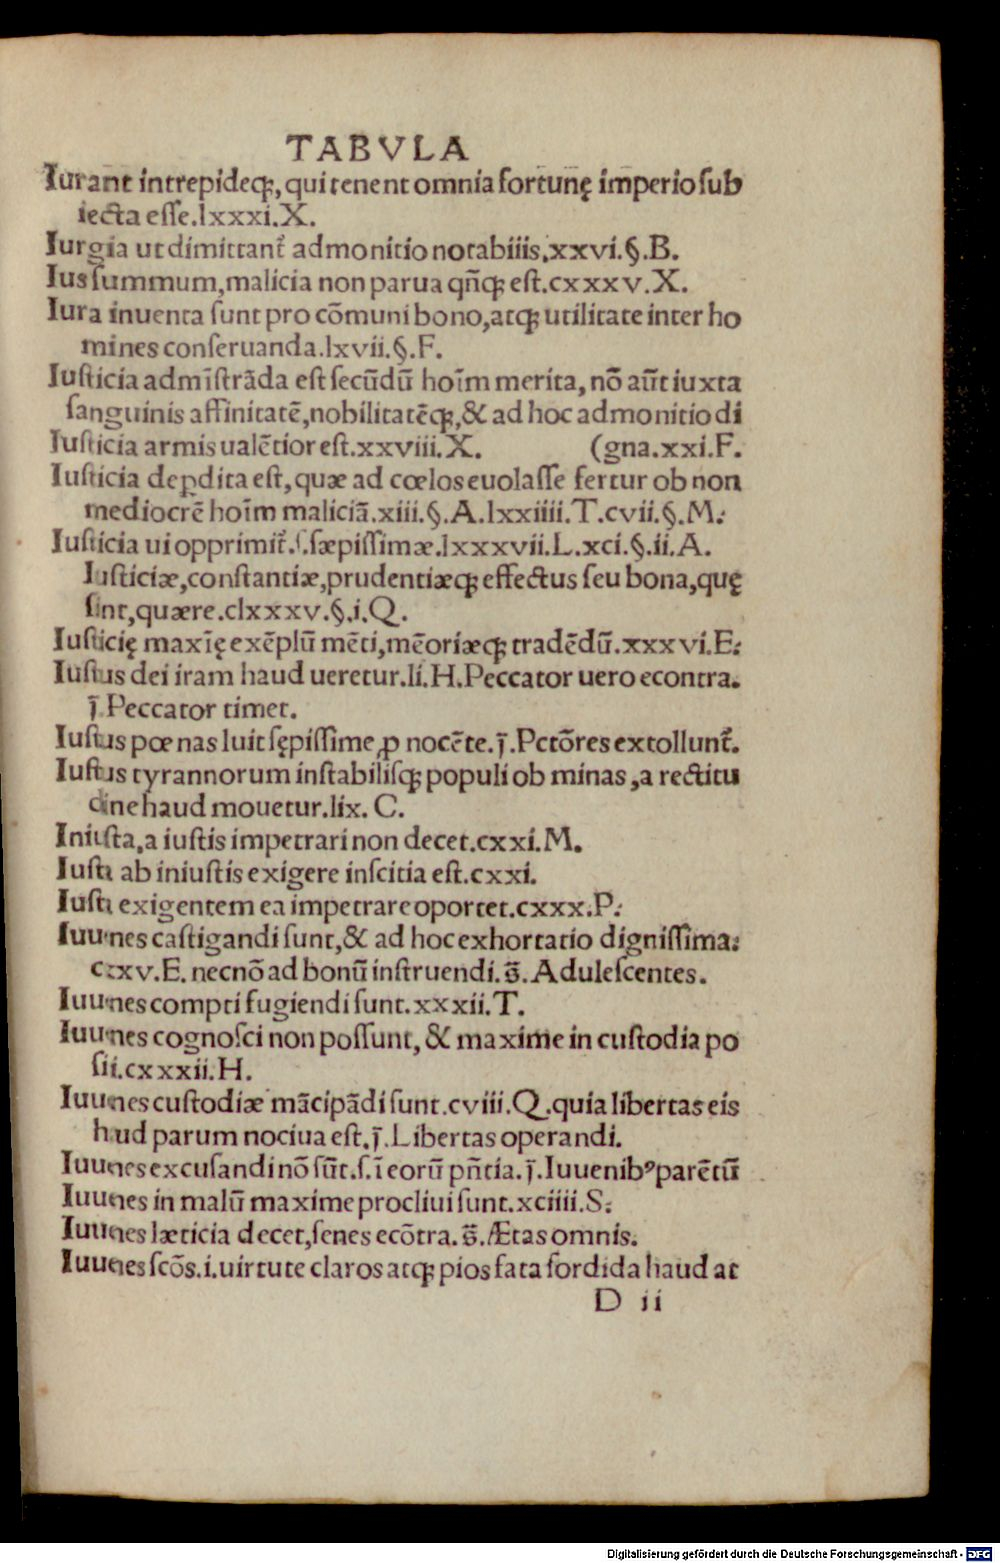 TABVLA
Iurant intrepideqꝫ, qui tenent omnia fortunę imperio sub
iecta esse.lxxxi.X.
Iurgia ut dimittant᷑ admonitio notabiiis.xxvi.§.B.
Ius summum, malicia non parua qñqꝫ est.cxxxv.X.
Iura inuenta sunt pro cōmuni bono, atqꝫ utilitate inter ho
mines conseruanda.lxvii.§.F.
Iusticia admīstrāda est secūdū hoīm merita, nō aūt iuxta
sanguinis affinitatē, nobilitatēqꝫ, & ad hoc admonitio di
Iusticia armis ualētior est.xxviii.X. (gna.xxi.F.
Iusticia deꝑdita est, quæ ad cœlos euolasse fertur ob non
mediocrē hoīm maliciā.xiii.§.A.lxxiiii.T.cvii.§.M:
Iusticia ui opprimit᷑.s.sæpissimæ.lxxxvii.L.xci.§.ii.A.
Iusticiæ, constantiæ, prudentiæqꝫ effectus seu bona, quę
sint, quære.clxxxv.§.i.Q.
Iusticię maxīę exēplū mēti, mēoriæqꝫ tradēdū.xxxvi.E:
Iustus dei iram haud ueretur.li.H.Peccator uero econtra.
j̄.Peccator timet.
Iustus pœnas luit sępissime ꝓ nocēte.j̄.Pctōres extollunt᷑.
Iustus tyrannorum instabilisqꝫ populi ob minas, a rectitu
dine haud mouetur.lix. C.
Iniusta, a iustis impetrari non decet.cxxi.M.
Iusta ab iniustis exigere inscitia est.cxxi.
Iusta exigentem ea impetrare oportet.cxxx.P:
Iuuenes castigandi sunt, & ad hoc exhortatio dignissima:
cxxv.E. necnō ad bonū instruendi. s̄. Adulescentes.
Iuuenes compti fugiendi sunt.xxxii.T.
Iuuenes cognosci non possunt, & maxime in custodia po
sii.cxxxii.H.
Iuuenes custodiæ mācipādi sunt.cviii.Q.quia libertas eis
haud parum nociua est.j̄.Libertas operandi.
Iuuenes excusandi nō sūt.s.ī eorū pn̄tia.j̄.Iuuenibꝰ parētū
Iuuenes in malū maxime procliui sunt.xciiii.S:
Iuuenes læticia decet, senes ecōtra. s̄.Ætas omnis.
Iuuenes scōs.i.uirtute claros atqꝫ pios fata sordida haud at
D ii
Digitalisierung gefördert durch die Deutsche Forschungsgemeinschaft - DFG